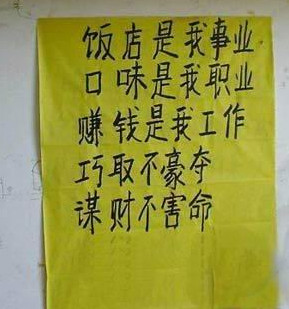 饭店是我事业
口味是我职业
赚钱是我工作
巧取不豪夺
谋财不害命